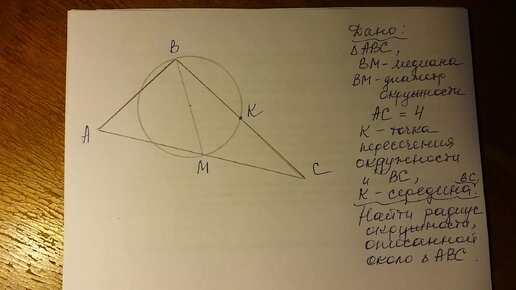 B
K
A
M
C
Дано:
△ABC,
BM - медиана
BM - диаметр
окружности
AC = 4
K - точка
пересечения
окружности
и BC,
K - середина BC.
Найти радиус
окружности,
описанной
около △ABC.